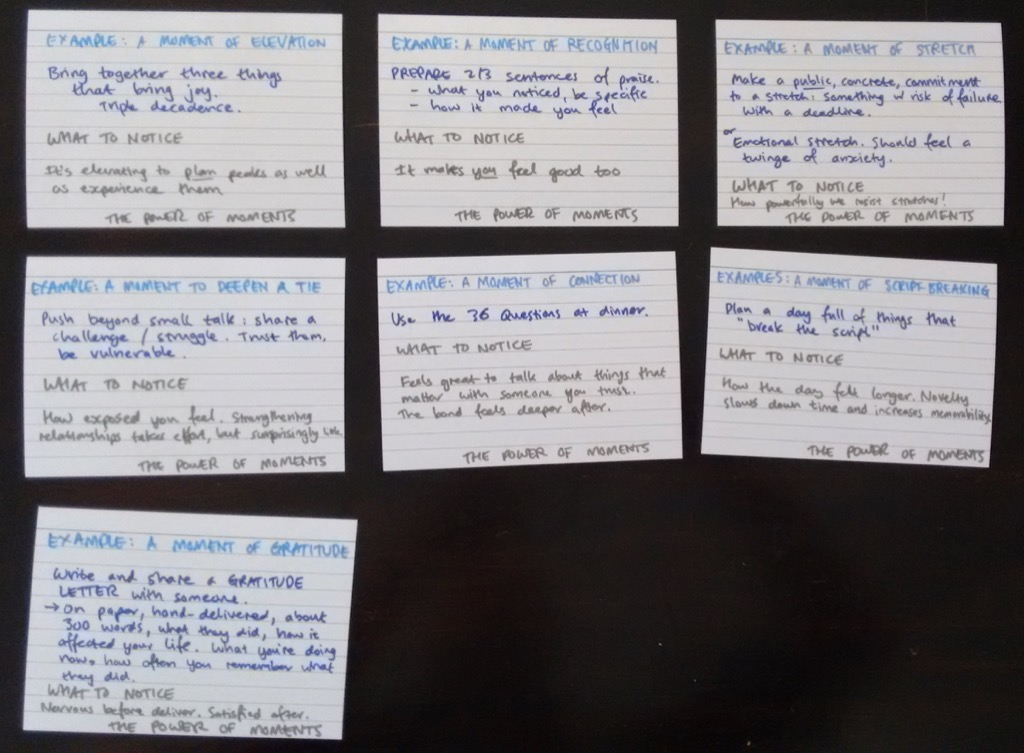 EXAMPLE: A MOMENT OF ELEVATION
Bring together three things
that bring joy.
Triple decadence.
WHAT TO NOTICE
It's elevating to plan peaks as well
as experience them
THE POWER OF MOMENTS
EXAMPLE: A MOMENT OF RECOGNITION
PREPARE 2/3 sentences of praise.
- what you noticed, be specific
- how it made you feel
WHAT TO NOTICE
It makes you feel good too
THE POWER OF MOMENTS
EXAMPLE: A MOMENT OF STRETCH
Make a public, concrete, commitment
to a stretch: something w risk of failure
with a deadline.
or
Emotional stretch. Should feel a
twinge of anxiety.
WHAT TO NOTICE
How powerfully we resist stretches!
THE POWER OF MOMENTS
EXAMPLE: A MOMENT TO DEEPEN A TIE
Push beyond small talk: share a
challenge / struggle. Trust them,
be vulnerable.
WHAT TO NOTICE
How exposed you feel. Strengthening
relationships takes effort, but surprisingly little
THE POWER OF MOMENTS
EXAMPLE: A MOMENT OF CONNECTION
Use the 36 Questions at dinner.
WHAT TO NOTICE
Feels great to talk about things that
matter with someone you trust.
The bond feels deeper after.
THE POWER OF MOMENTS
EXAMPLES: A MOMENT OF SCRIPT-BREAKING
Plan a day full of things that
"break the script"
WHAT TO NOTICE
How the day felt longer. Novelty
slows down time and increases memorability.
THE POWER OF MOMENTS
EXAMPLE: A MOMENT OF GRATITUDE
Write and share a GRATITUDE
LETTER with someone.
→ On paper, hand-delivered, about
300 words, what they did, how it
affected your life. What you're doing
now, how often you remember what
they did.
WHAT TO NOTICE
Nervous before deliver. Satisfied after.
THE POWER OF MOMENTS